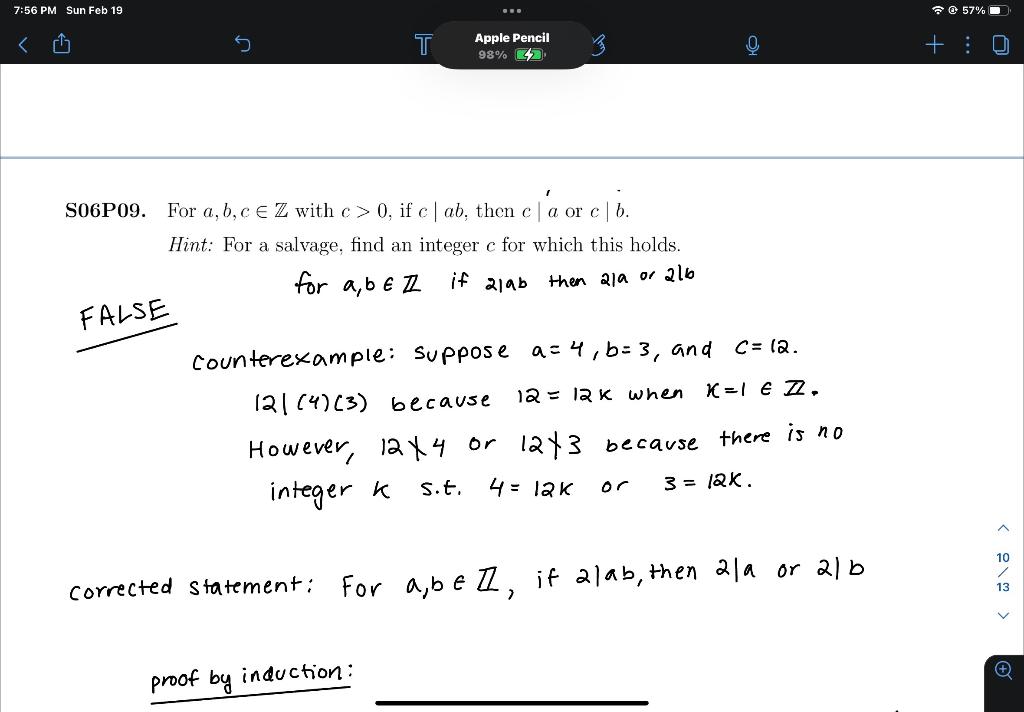 7:56 PM Sun Feb 19
57%
Apple Pencil
98%
S06P09. For a, b, c ∈ ℤ with c > 0, if c | ab, then c | a or c | b.
Hint: For a salvage, find an integer c for which this holds.
for a,b ∈ ℤ if 2|ab then 2|a or 2|b
FALSE
counterexample: suppose a = 4, b = 3, and c = 12.
12|(4)(3) because 12 = 12k when k=1 ∈ ℤ.
However, 12∤4 or 12∤3 because there is no
integer k s.t. 4 = 12k or 3 = 12k.
10
/
13
corrected statement: For a,b ∈ ℤ, if 2|ab, then 2|a or 2|b
proof by induction: